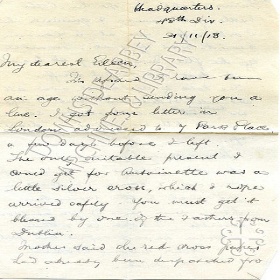 Headquarters.
18th Div.
21/11/18.
My dearest Eileen,
I'm afraid I have been
an age without sending you a
line. I got your letter in
London addressed to 7 Park Place
a few days before I left.
The only suitable present I
could get for Antoinette was a
little silver cross, which I hope
arrived safely. You must get it
blessed by one of the Fathers from
Dublin.
Mother said the red cross
had already been despatched for
ABBEY
LIBRARY